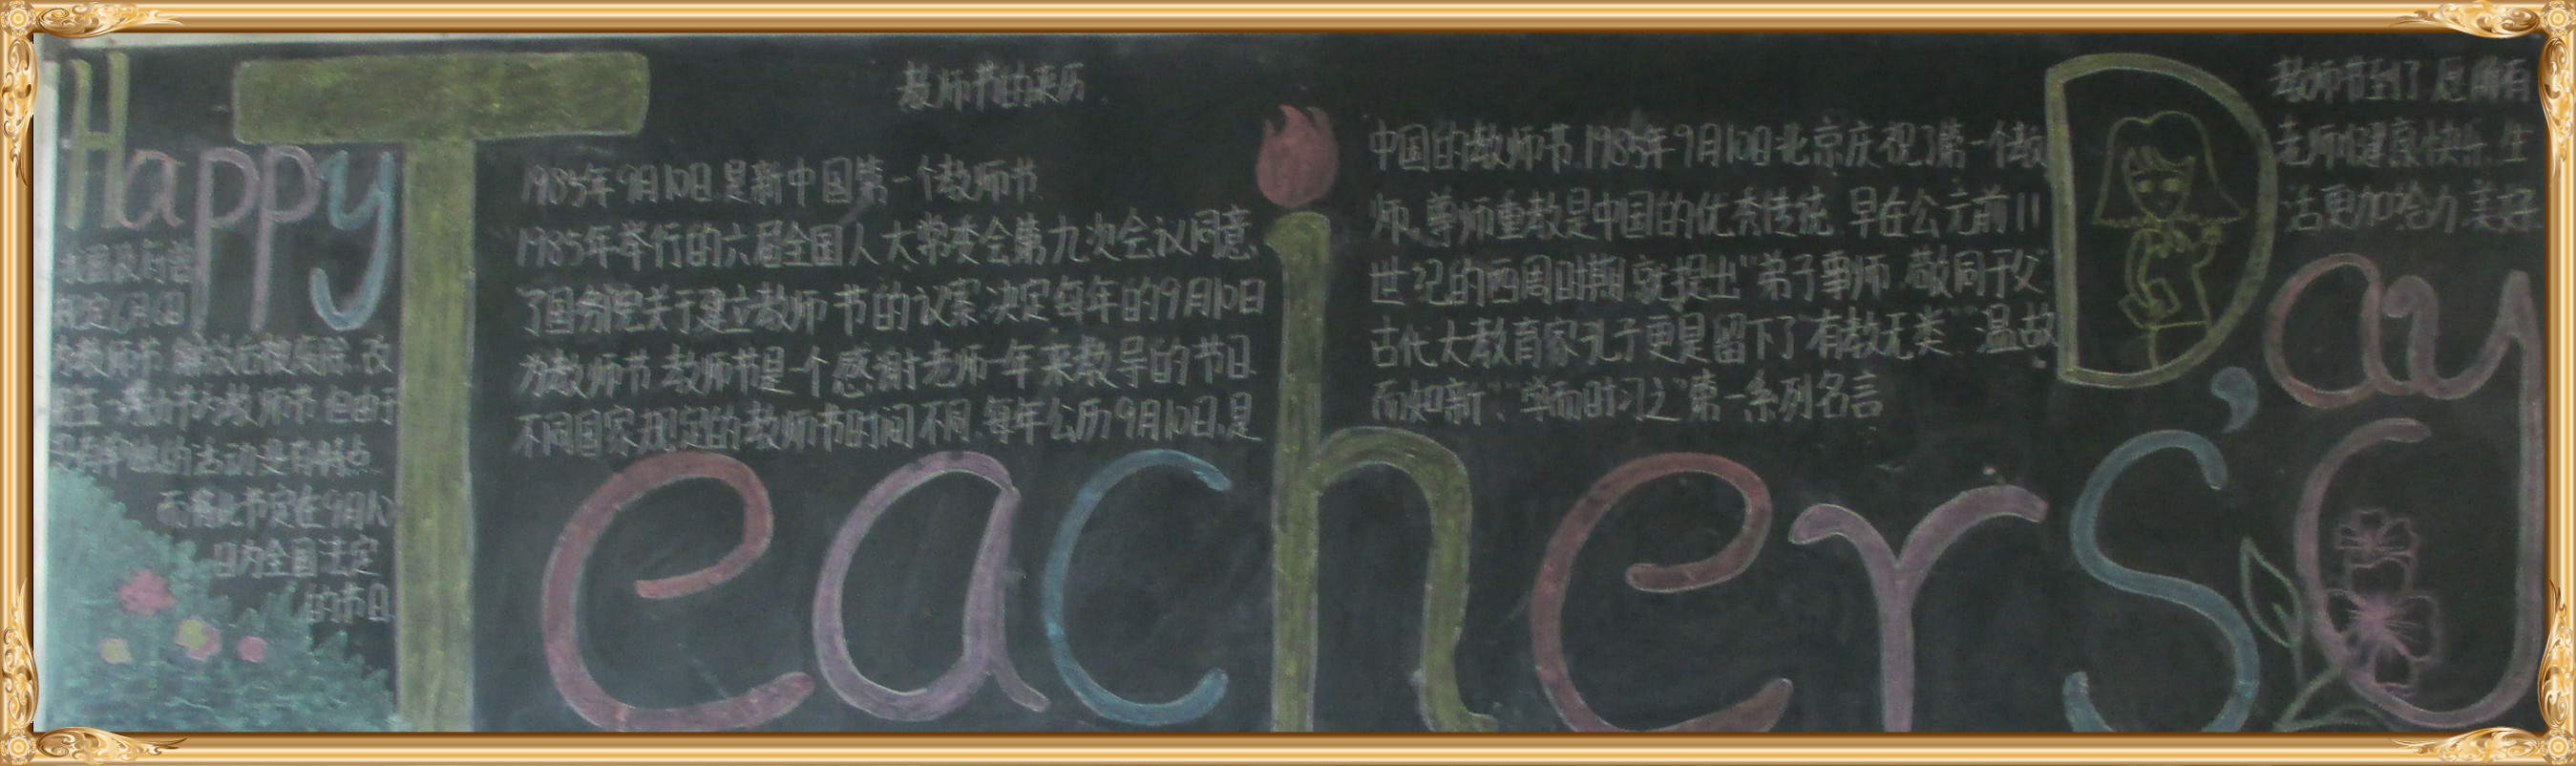 Happy
Teachers'
Day
教师节的来历
1985年9月10日是新中国第一个教师节
1985年举行的六届全国人大常委会第九次会议同意
了国务院关于建立教师节的议案.决定每年的9月10日
为教师节.教师节是一个感谢老师一年来教导的节日
不同国家规定的教师节时间不同.每年公历9月10日.是
中国的教师节.1985年9月10日北京庆祝了第一个教
师.尊师重教是中国的优秀传统.早在公元前11
世纪的西周时期.就提出"弟子事师.敬同于父"
古代大教育家孔子更是留下了"有教无类""温故
而知新"、"学而时习之"第一系列名言
教师节到了.愿所有
老师健康快乐.生
活更加给力.美好
规定6月6日
为教师节.解放后被废除.改
五一劳动节为教师节.但由于
活动没有特点.
而将此节定在9月10
日为全国法定
的节日.